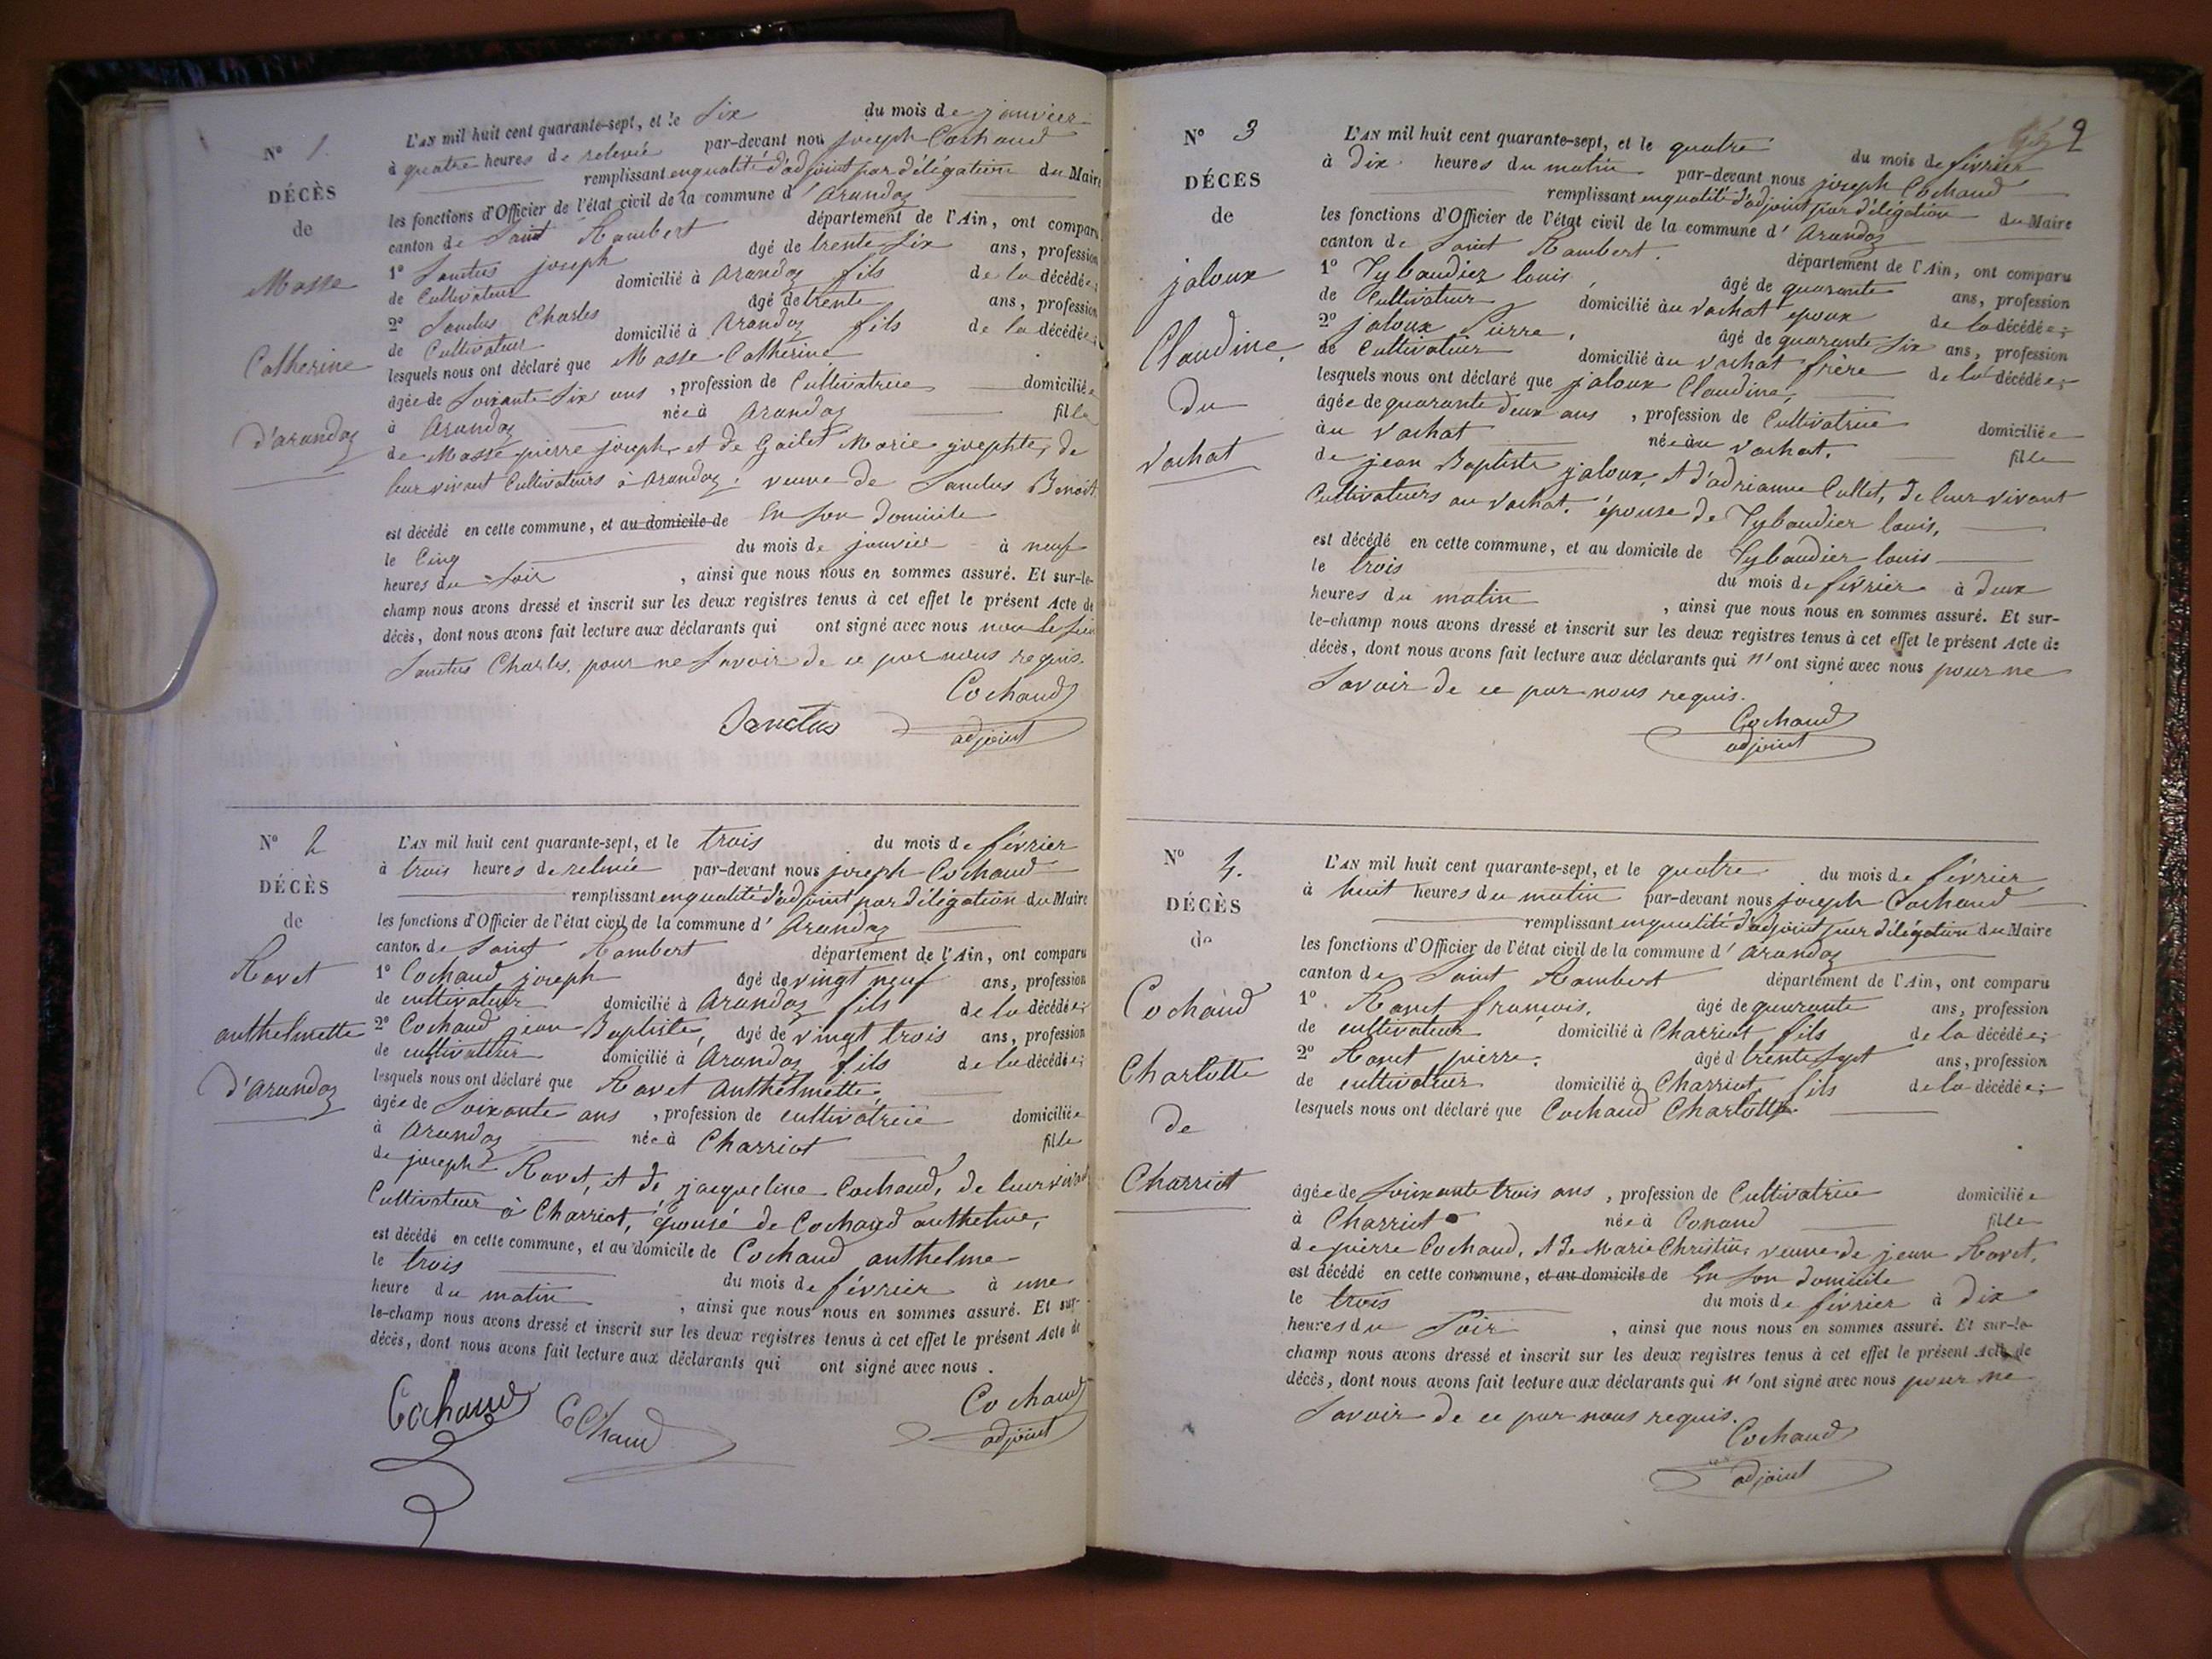 N° 1.
DÉCÈS
de
Masse
Catherine
d'arandaz
L'AN mil huit cent quarante-sept, et le six du mois de janvier
à quatre heures de relevée par-devant nous joseph Cochaud
remplissant en qualité d'adjoint par délégation du Maire
les fonctions d'Officier de l'état civil de la commune d' arandaz
canton de Saint Rambert département de l'Ain, ont comparu
1° Sanctus joseph âgé de trente six ans, profession
de Cultivateur domicilié à arandaz fils de la décédée;
2° Sanctus Charles âgé de trente ans, profession
de Cultivateur domicilié à arandaz fils de la décédée;
lesquels nous ont déclaré que Masse Catherine
âgée de soixante six ans, profession de Cultivatrice domiciliée
à arandaz née à arandaz fille
de Masse pierre joseph, et de Marie josephte, de
leur vivant Cultivateurs à arandaz, veuve de Sanctus Benoît
est décédé en cette commune, et au domicile de En son domicile
le Cinq du mois de janvier à neuf
heures du soir, ainsi que nous nous en sommes assuré. Et sur-le-
champ nous avons dressé et inscrit sur les deux registres tenus à cet effet le présent Acte de
décès, dont nous avons fait lecture aux déclarants qui ont signé avec nous non le sieur
Sanctus Charles, pour ne savoir de ce par nous requis.
Cochaud
Sanctus adjoint
N° 2
DÉCÈS
de
Ravet
anthelmette
d'Arandaz
L'AN mil huit cent quarante-sept, et le trois du mois de février
à trois heures de relevée par-devant nous joseph Cochaud
remplissant en qualité d'adjoint par délégation du Maire
les fonctions d'Officier de l'état civil de la commune d' Arandaz
canton de Saint Rambert département de l'Ain, ont comparu
1° Cochaud joseph âgé de vingt neuf ans, profession
de cultivateur domicilié à Arandaz fils de la décédée;
2° Cochaud jean Baptiste, âgé de vingt trois ans, profession
de cultivateur domicilié à Arandaz fils de la décédée;
lesquels nous ont déclaré que Ravet Anthelmette
âgée de soixante ans, profession de cultivatrice domiciliée
à Arandaz née à Charriot fille
de joseph Ravet, et de jacqueline Cochaud, de leur vivant
Cultivateur à Charriot, épouse de Cochaud anthelme,
est décédé en cette commune, et au domicile de Cochaud anthelme
le trois du mois de février à une
heure du matin, ainsi que nous nous en sommes assuré. Et sur-
le-champ nous avons dressé et inscrit sur les deux registres tenus à cet effet le présent Acte de
décès, dont nous avons fait lecture aux déclarants qui ont signé avec nous.
Cochaud Cochaud Cochaud
adjoint
9
N° 3
DÉCÈS
de
jaloux
Claudine
du
Vachat
L'AN mil huit cent quarante-sept, et le quatre du mois de février
à Dix heures du matin par-devant nous joseph Cochaud
remplissant en qualité d'adjoint par délégation du Maire
les fonctions d'Officier de l'état civil de la commune d' Arandaz
canton de Saint Rambert. département de l'Ain, ont comparu
1° Tybaudier louis âgé de quarante ans, profession
de Cultivateur domicilié au Vachat epoux de la décédée;
2° jaloux Pierre, âgé de quarante six ans, profession
de Cultivateur domicilié au Vachat frère de la décédée;
lesquels nous ont déclaré que jaloux Claudine,
âgée de quarante deux ans, profession de Cultivatrice domiciliée
au Vachat née au Vachat. fille
de jean Baptiste jaloux, et d'adrianne Cullet, de leur vivant
Cultivateurs au Vachat, épouse de Tybaudier louis,
est décédé en cette commune, et au domicile de Tybaudier louis
le trois du mois de février à deux
heures du matin, ainsi que nous nous en sommes assuré. Et sur-
le-champ nous avons dressé et inscrit sur les deux registres tenus à cet effet le présent Acte de
décès, dont nous avons fait lecture aux déclarants qui n'ont signé avec nous pour ne
savoir de ce par nous requis.
Cochaud
adjoint
N° 4.
DÉCÈS
de
Cochaud
Charlotte
de
Charriot
L'AN mil huit cent quarante-sept, et le quatre du mois de février
à huit heures du matin par-devant nous joseph Cochaud
remplissant en qualité d'adjoint par délégation du Maire
les fonctions d'Officier de l'état civil de la commune d' Arandaz
canton de Saint Rambert département de l'Ain, ont comparu
1° Ravet francois, âgé de quarante ans, profession
de cultivateur domicilié à Charriot fils de la décédée;
2° Ravet pierre. âgé d trente sept ans, profession
de cultivateur domicilié à Charriot fils de la décédée;
lesquels nous ont déclaré que Cochaud Charlotte
âgée de soixante trois ans, profession de Cultivatrice domiciliée
à Charriot née à Conand fille
de pierre Cochaud, et de Marie Christin, veuve de jean Ravet,
est décédé en cette commune, et au domicile de En son domicile
le trois du mois de février à dix
heures du soir, ainsi que nous nous en sommes assuré. Et sur-le-
champ nous avons dressé et inscrit sur les deux registres tenus à cet effet le présent Acte de
décès, dont nous avons fait lecture aux déclarants qui n'ont signé avec nous pour ne
savoir de ce par nous requis.
Cochaud
adjoint